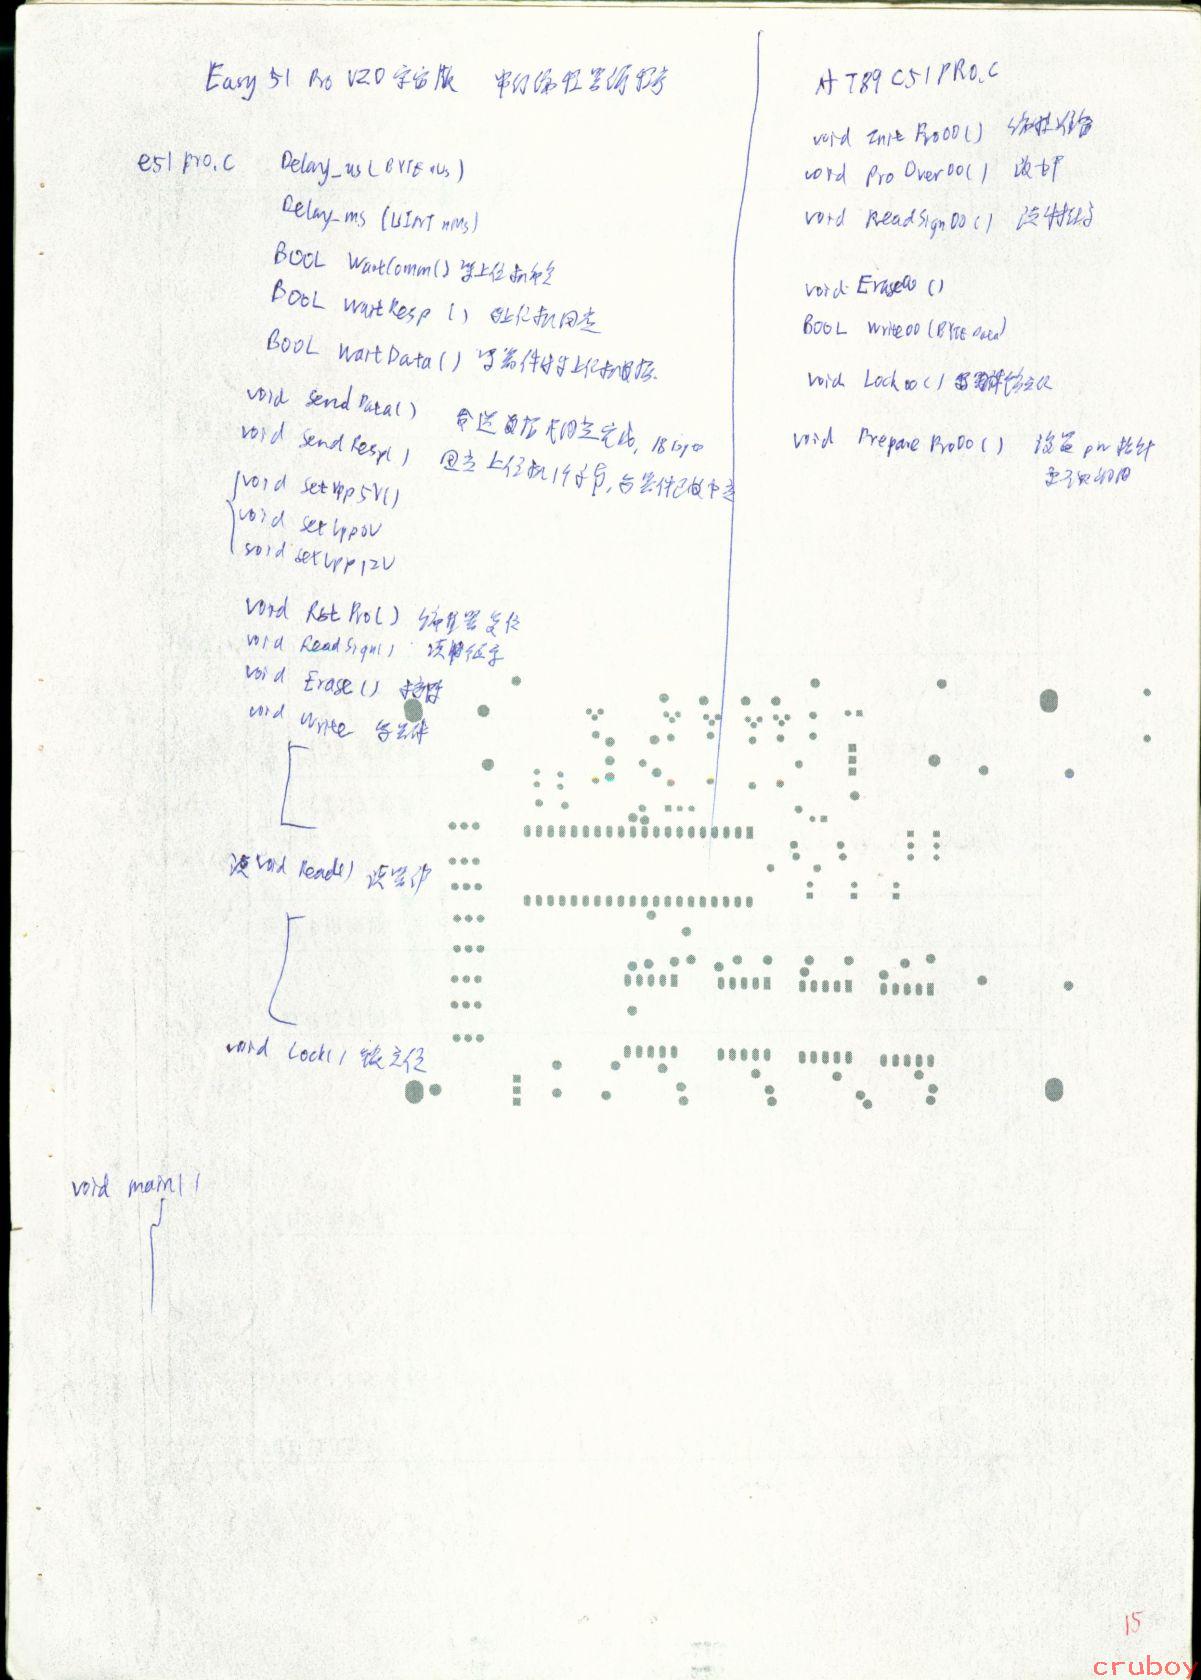 Easy 51 Pro V2.0 宇宙版 串行编程器源程序
e51pro.c Delay_us(BYTE nUs)
Delay_ms (UINT nMs)
BOOL WaitComm() 等上位机命令
BOOL WaitResp () 上位机回应
BOOL WaitData() 写器件时等上位机数据.
void SendData()
void SendResp() 回应上位机1个字节,
void SetVpp5V()
void SetVpp0V
void SetVpp12V
void RstPro() 编程器复位
void ReadSign() 读特征字
void Erase() 擦除
void Write 写器件
读 void Read() 读器件
void Lock() 锁定位
void main()
AT89C51PRO.C
void InitPro00() 编程准备
void ProOver00()
void ReadSign00() 读特征字
void Erase00 ()
BOOL Write00 (BYTE Data)
void Lock00()
void PreparePro00() 设置pw指针
15
cruboy